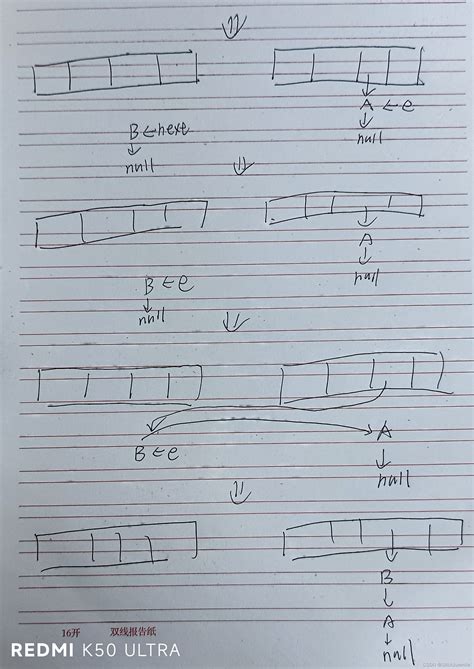 A ← e
B ← nexe
null
null
A
B ← e
null
null
B ← e
A
null
B
A
null
16开 双线报告纸
REDMI K50 ULTRA